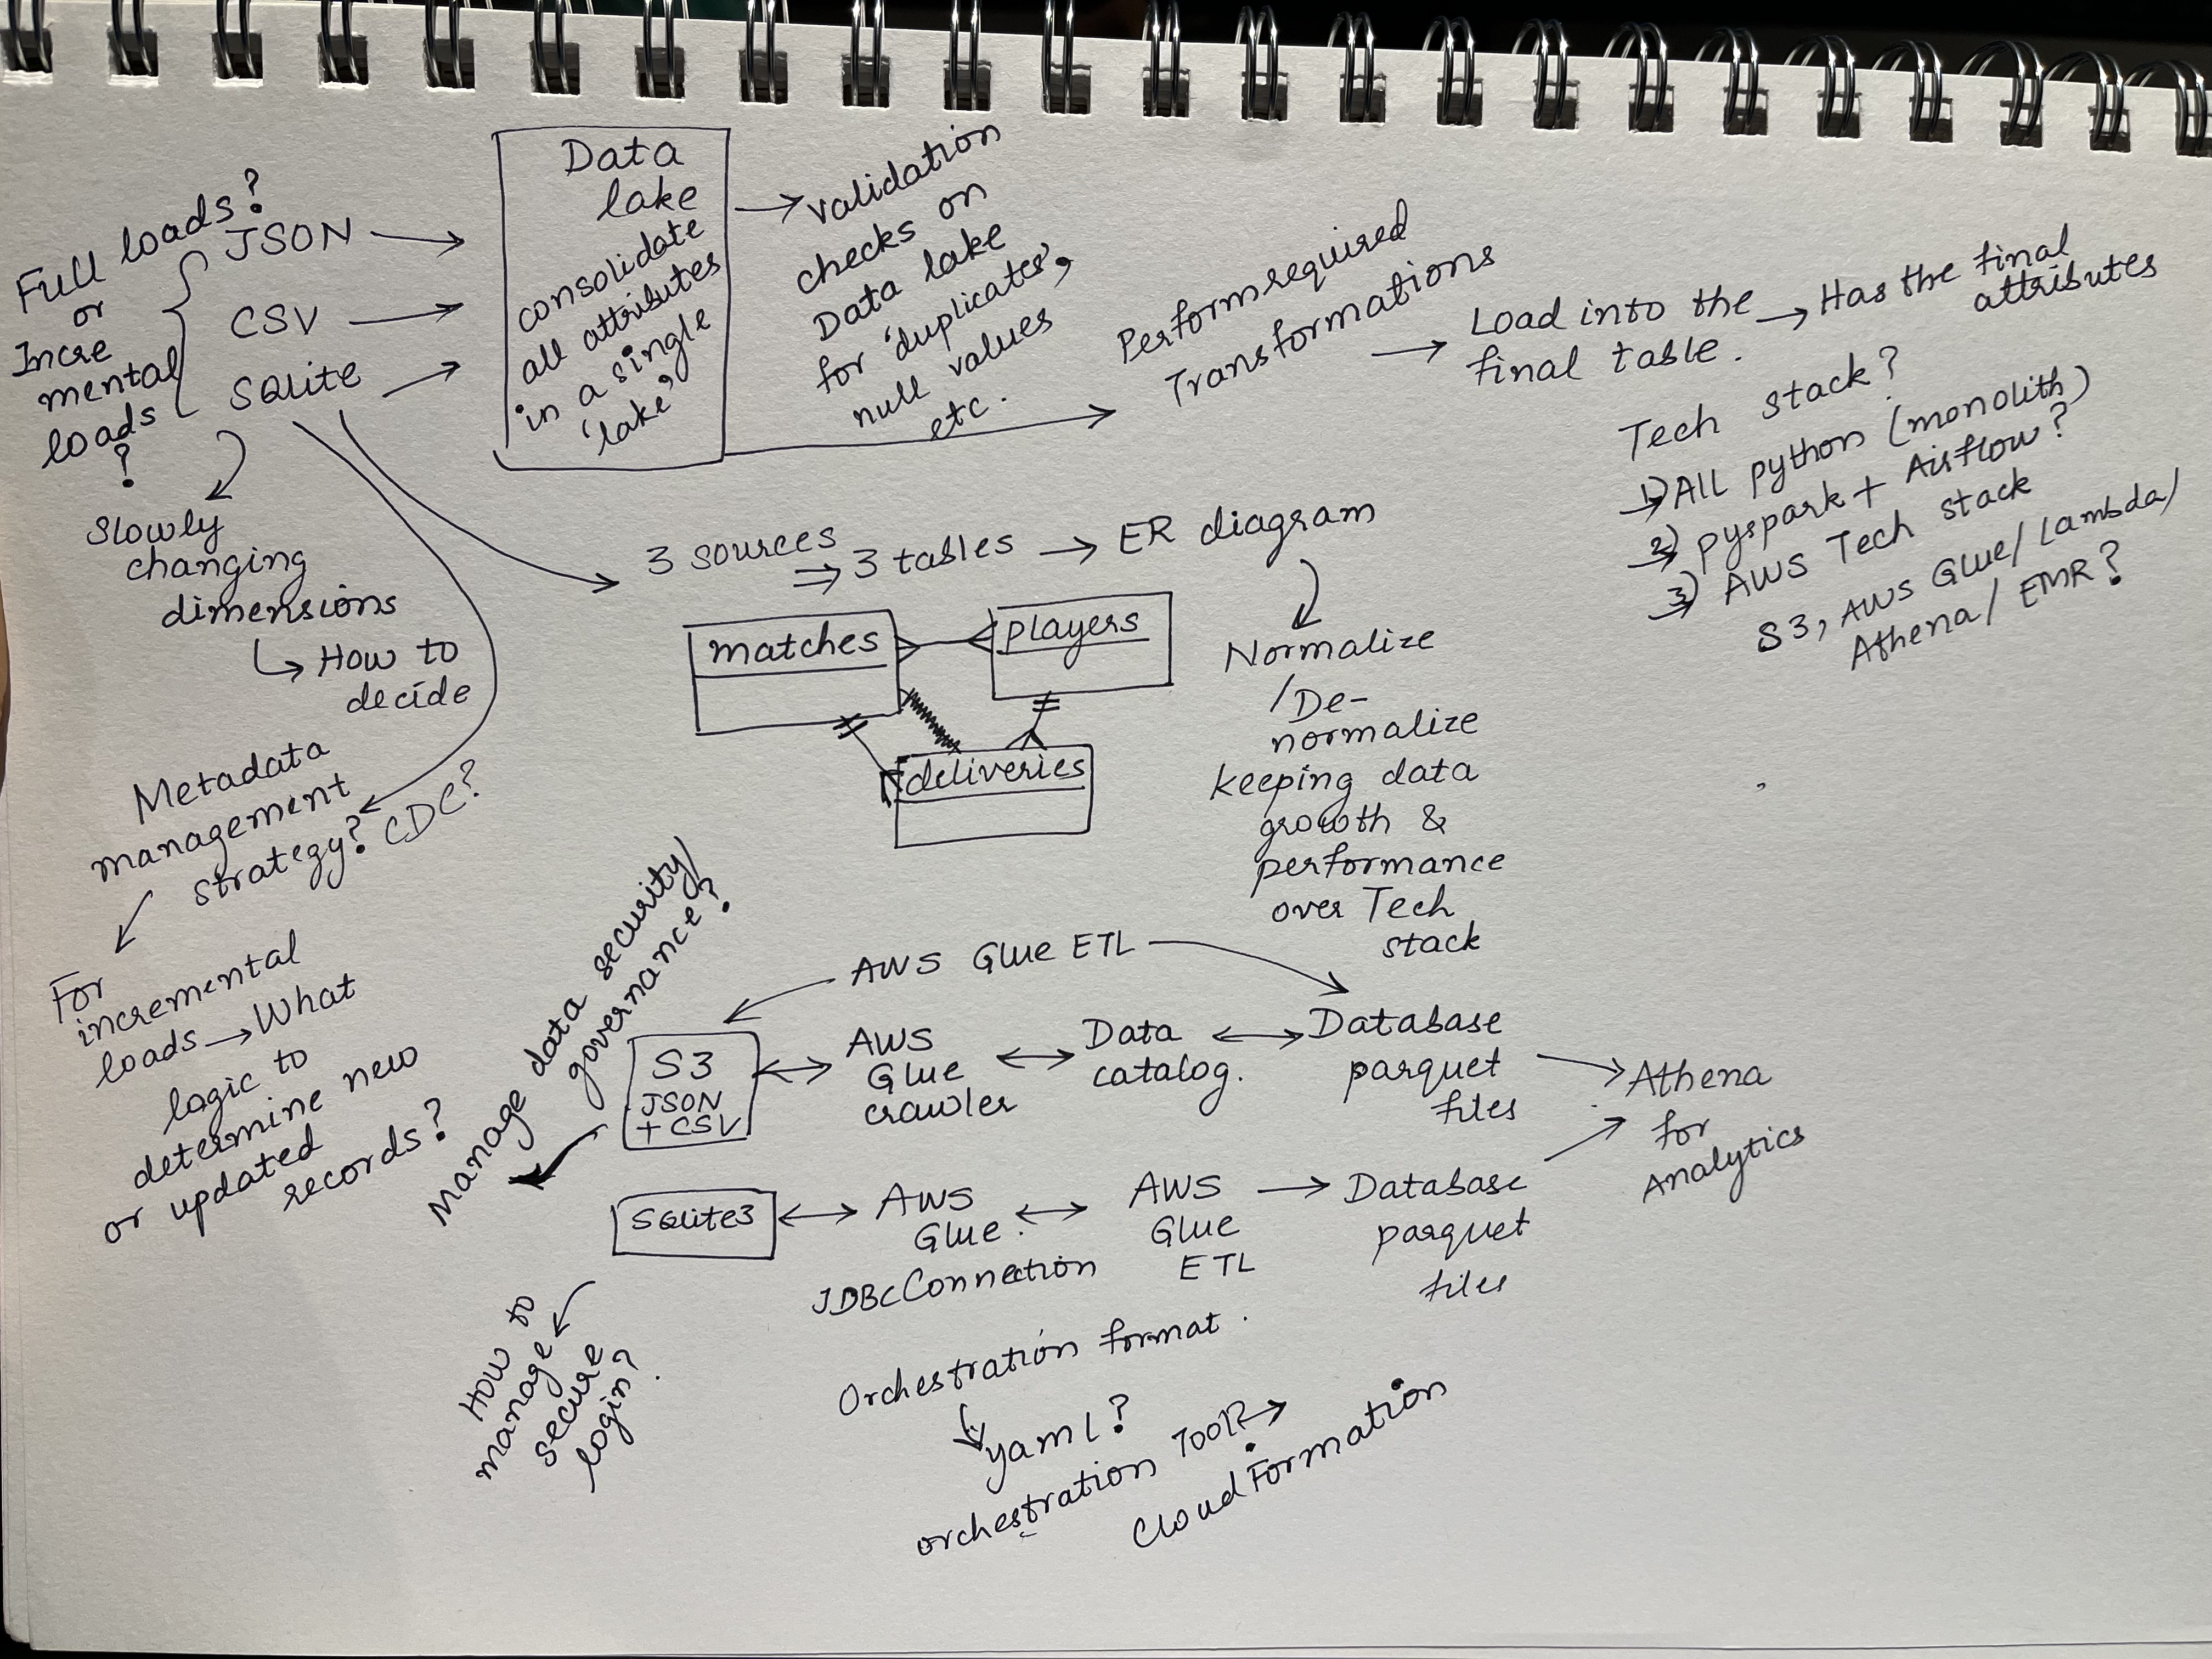 Full loads?
or
Incre
mental
loads
?
JSON
CSV
SQlite
Data
lake
consolidate
all attributes
in a single
'lake'
validation
checks on
Data lake
for 'duplicates',
null values
etc.
Perform required
Transformations
Load into the
final table.
Has the final
attributes
Tech stack?
1) All python (monolith)
2) pyspark + Airflow?
3) AWS Tech stack
S3, AWS Glue/Lambda/
Athena/ EMR?
Slowly
changing
dimensions
How to
decide
3 sources
⇒ 3 tables → ER diagram
matches
players
deliveries
Normalize
/De-
normalize
keeping data
growth &
performance
over Tech
stack
Metadata
management
strategy? CDC?
For
incremental
loads → What
logic to
determine new
or updated
records?
Manage data security/
governance?
AWS Glue ETL
S3
JSON
+ CSV
AWS
Glue
crawler
Data
catalog.
Database
parquet
files
Athena
for
Analytics
SQlite3
AWS
Glue
JDBC Connection
AWS
Glue
ETL
Database
parquet
files
How to
manage
secure
login?
Orchestration format.
yaml?
orchestration Tool? →
CloudFormation